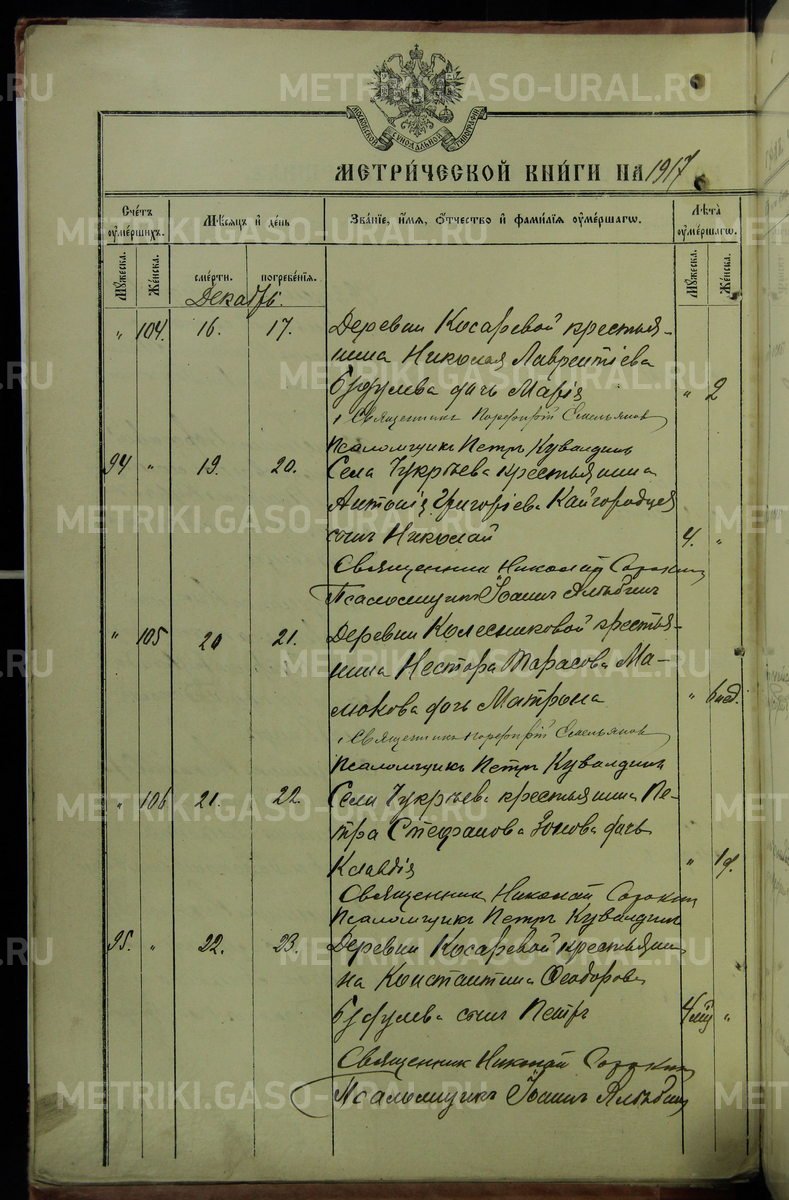 METRIKI.GASO-URAL.RU
МОСКОВСКОЙ СѴНОДАЛЬНОЙ ТИПОГРАФІИ
МЕТРИ́ЧЕСКОЙ КНИ́ГИ НА 1917
Сче́тъ оуме́ршихъ. Мѣ́сяцъ и҆ де́нь Зва́нїе, и҆́мя, ѻ҆́тчество и҆ фами́лїя оуме́ршагѡ. Лѣ́та оуме́ршагѡ.
Му́жеска. Же́нска. сме́рти. погребе́нїя. Му́жеска. Же́нска.
Декабрь.
" 104. 16. 17. Деревни Косаревой крестья-
нина Николая Лаврентіева
дочь Марія " 2
Священникъ Порфирій Емельяновъ
Псаломщикъ Петръ Кувалдинъ
94 " 19. 20. Села Чукрѣева крестьянина
Антонія Григоріева Кайгородцева
сынъ Николай 4. "
Священникъ Николай Сорокин
Псаломщикъ Іоаннъ
" 105 20 21. Деревни Колесниковой крестья-
нина Нестора Тарасова Ма-
монова дочь Матрона " 6 нед.
Священникъ Порфирій Емельяновъ
Псаломщикъ Петръ Кувалдинъ
" 106 21. 22. Села Чукрѣева крестьянина Пе-
тра Стефанова Зонова дочь
Клавдія " 1 д.
Священникъ Николай Сорокин
Псаломщикъ Петръ Кувалдинъ
95. " 22. 23. Деревни Косаревой крестьяни
на Константина Феодорова
сынъ Петръ 4 "
Священникъ Николай Сорокин
Псаломщикъ Іоаннъ